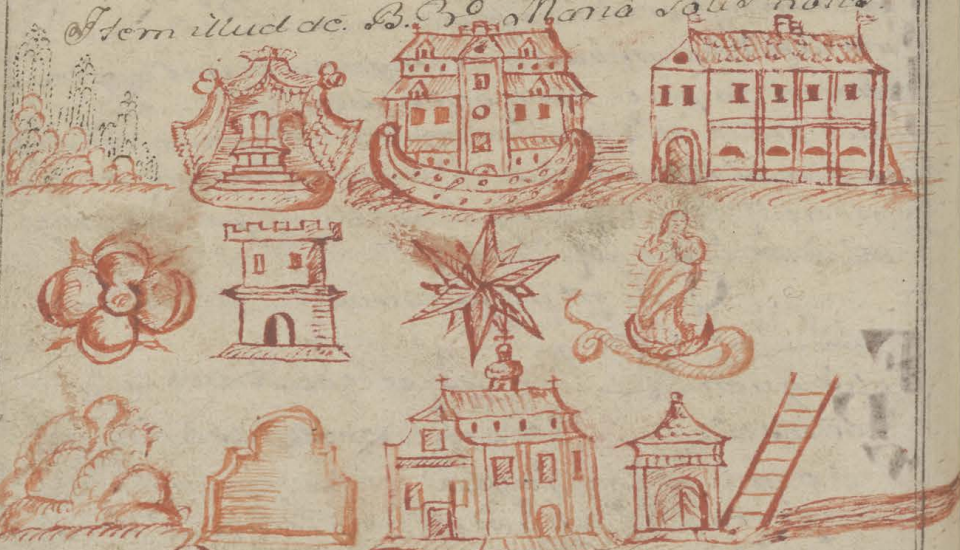 Item illud de. B. Vrõ Maria